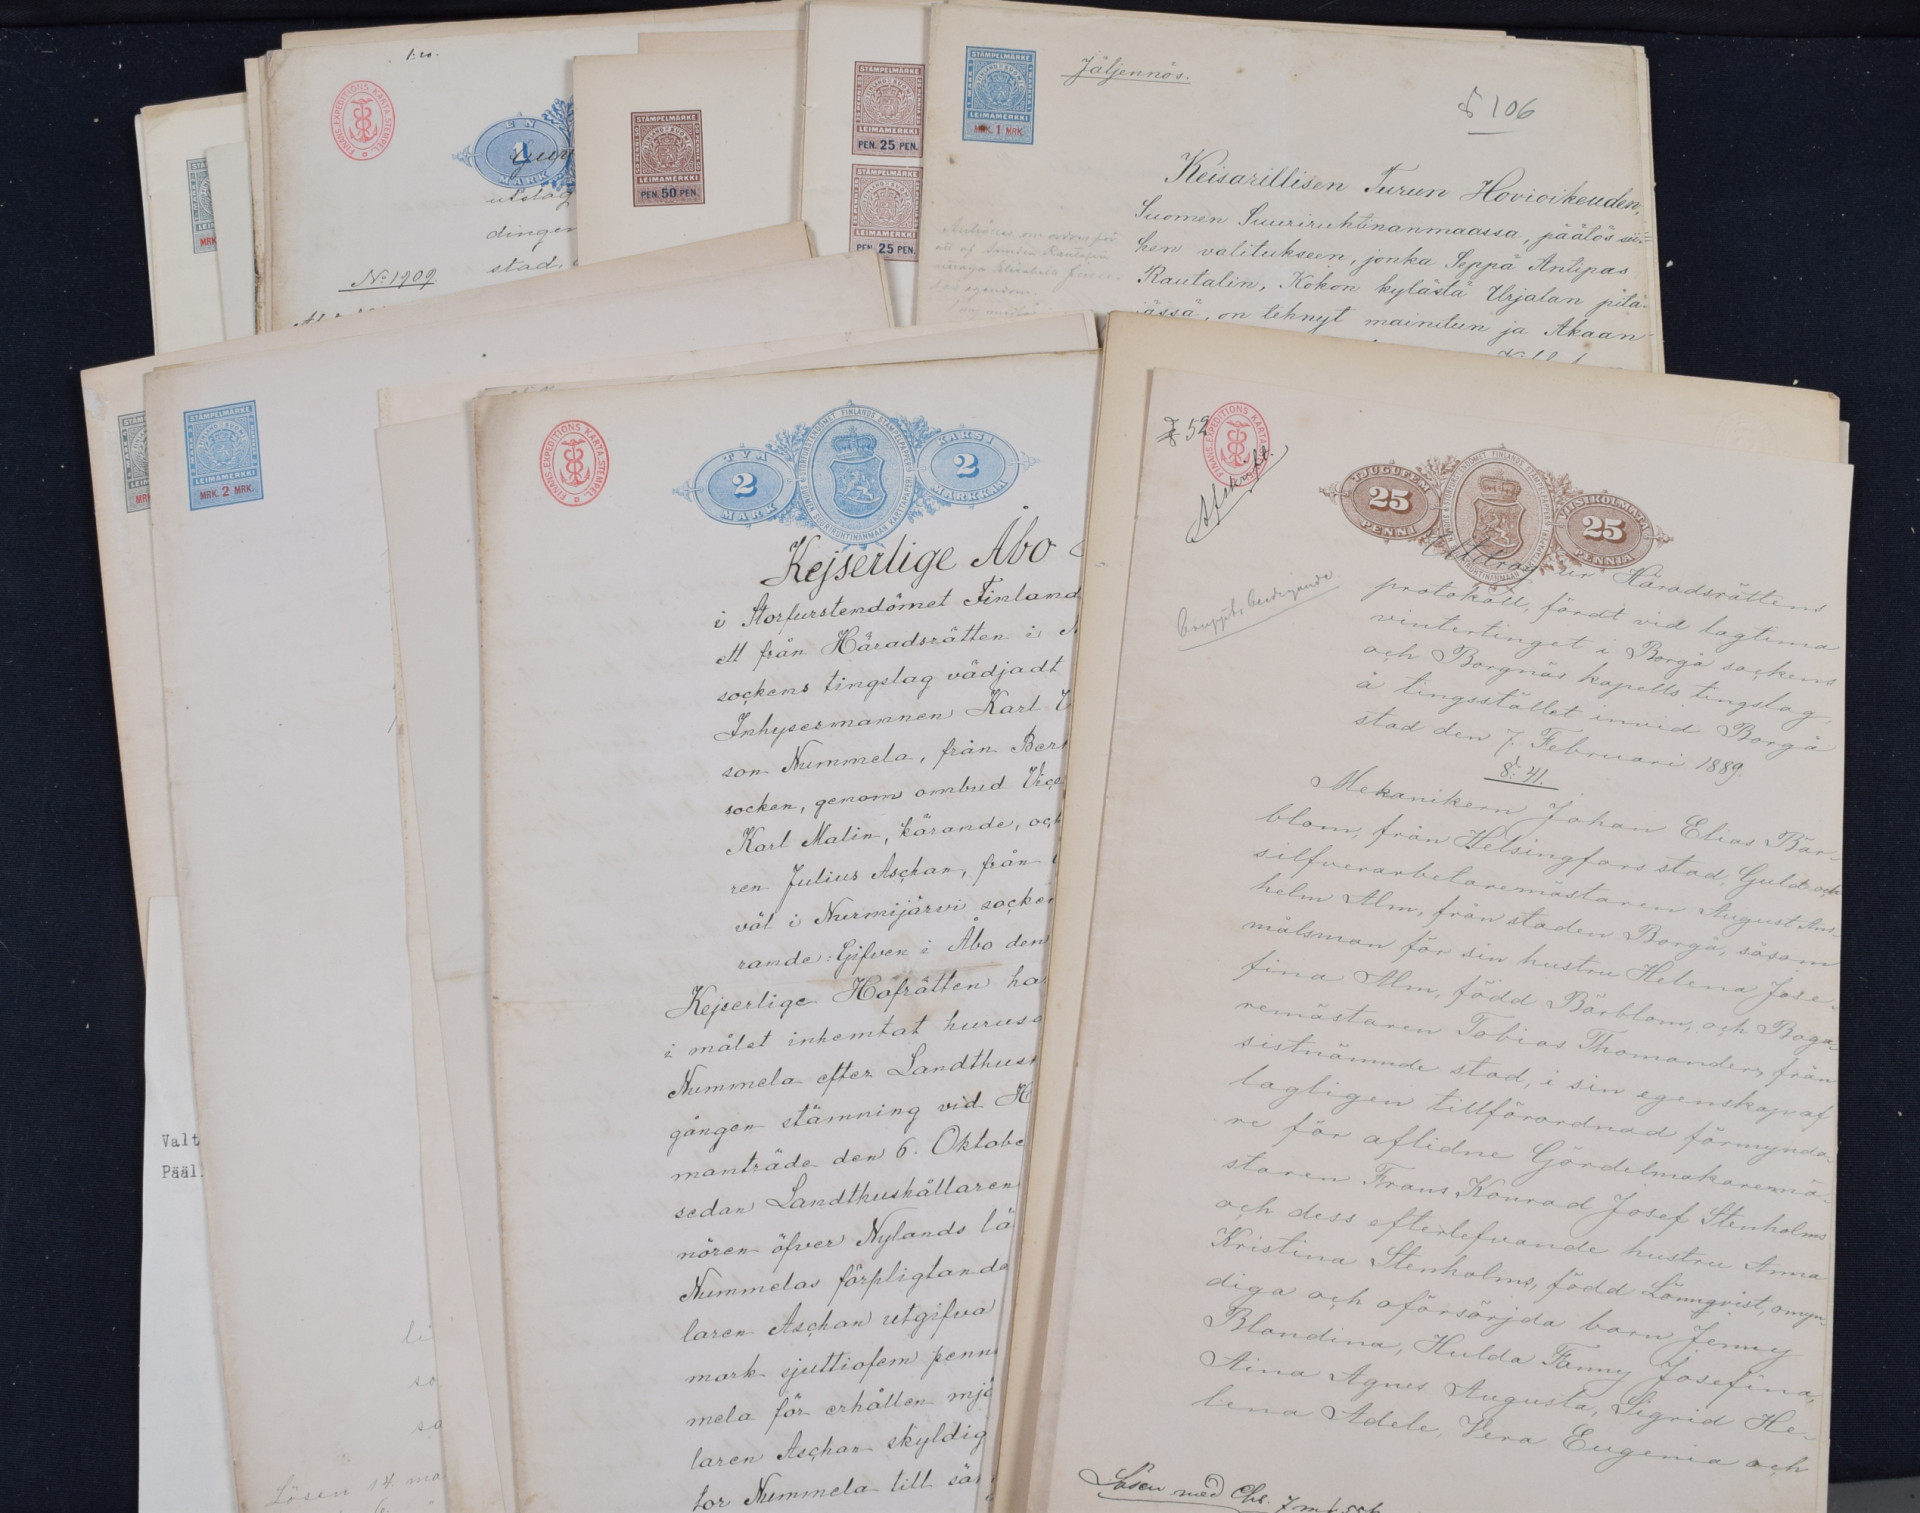 1:20.
FINANS.EXPEDITIONS KARTA.STEMPEL.
EN
1
MARK
utslag
dingen
stad,
No 1909
STÄMPELMÄRKE
LEIMAMERKKI
PEN. 50 PEN.
STÄMPELMÄRKE
LEIMAMERKKI
PEN. 25 PEN.
STÄMPELMÄRKE
LEIMAMERKKI
PEN. 25 PEN.
STÄMPELMÄRKE
FINLAND SUOMI
LEIMAMERKKI
MRK. 1 MRK.
Jäljennös.
§ 106
Keisarillisen Turun Hovioikeuden,
Suomen Suuriruhtinanmaassa, päätös sii=
hen valitukseen, jonka Seppä Antipas
Rautalin, Kokon kylästä Urjalan pitä-
jässä, on tehnyt mainitun ja Akaan
MRK
STÄMPELMÄRKE
LEIMAMERKKI
MRK. 2 MRK.
Valt
Pääl
li
so
so
Lösen 14 ma
FINANS.EXPEDITIONS KARTA.STEMPEL.
TVÅ
2
MARK
STORFURSTENDÖMET FINLANDS STÄMPELPAPPER
SUURIRUHTINANMAAN KARTTAPAPERI
KAKSI
2
MARKKAA
Kejserlige Åbo
i Storfurstendömet Finland
ett från Häradsrätten i N
sockens tingslag vädjadt
Inhysesmannen Karl
son Nummela, från Ber
socken, genom ombud Vice
Karl Malin, kärande, och
ren Julius Aschan, från
väl i Nurmijärvi socken
rande: Gifven i Åbo den
Kejserlige Hofrätten ha
i målet inhemtat huruso
Nummela efter Landthus
gången stämning vid H
manträde den 6. Oktobe
sedan Landthushållaren
nören öfver Nylands lä
Nummelas förpligtande
laren Aschan utgifva
mark sjuttiofem penni
mela för erhållen mjö
laren Aschan skyldig
tor Nummela till sär
§ 52
FINANS.EXPEDITIONS KARTA.STEMPEL.
Afskrift.
TJUGUFEM
25
PENNI
STORFURSTENDÖMET FINLANDS STÄMPELPAPPER
VIISIKOLMATTA
25
PENNIÄ
Utdrag ur Häradsrättens
protokoll, fördt vid lagtima
vintertinget i Borgå sockens
och Borgnäs kapells tingslag,
å tingsstället invid Borgå
stad den 7. Februari 1889.
§: 41.
Mekanikern Johan Elias Bär-
blom, från Helsingfors stad, Guld- och
silfverarbetaremästaren August An-
helm Alm, från staden Borgå, såsom
målsman för sin hustru Helena Jose-
fina Alm, född Bärblom, och Baga-
remästaren Tobias Thomander, från
sistnämnde stad, i sin egenskap af
lagligen tillförordnad förmynda-
re för aflidne Gördelmakaremä-
staren Frans Konrad Josef Stenholms
och dess efterlefvande hustru Anna
Kristina Stenholms, född Lönnqvist, omyn-
diga och oförsörjda barn Jenny
Blondina, Hulda Fanny Josefina,
Aina Agnes Augusta, Sigrid He-
lena Adele, Vera Eugenia och
Lösen med Chs. 7 mk 55 p